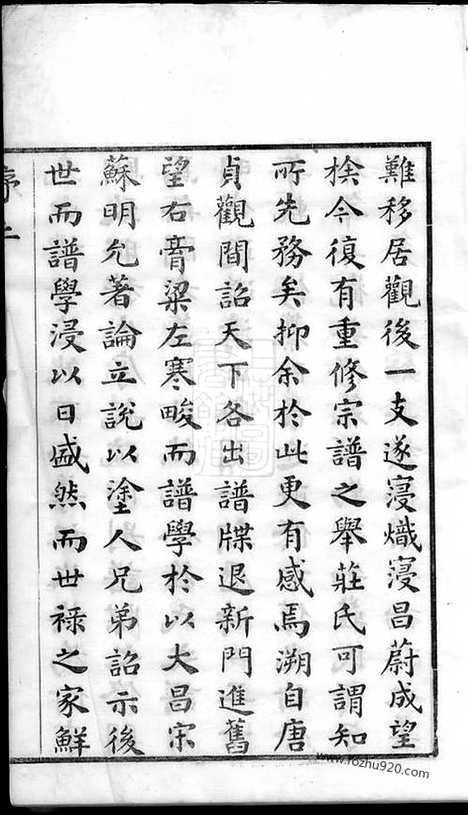 難移居觀後一支遂寖熾寖昌蔚成望
族今復有重修宗譜之舉莊氏可謂知
所先務矣抑余於此更有感焉溯自唐
貞觀間詔天下各出譜牒退新門進舊
望右膏粱左寒畯而譜學於以大昌宋
蘇明允著論立說以塗人兄弟詔示後
世而譜學浸以日盛然而世祿之家鮮
序
www.fozhu920.com